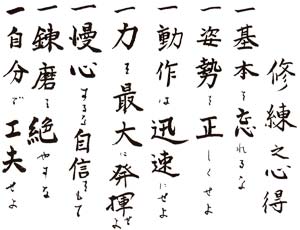 修練之心得
一基本を忘れるな
一姿勢を正しくせよ
一動作は迅速にせよ
一力を最大に発揮せよ
一慢心するな自信をもて
一錬磨を絶やすな
一自分で工夫せよ